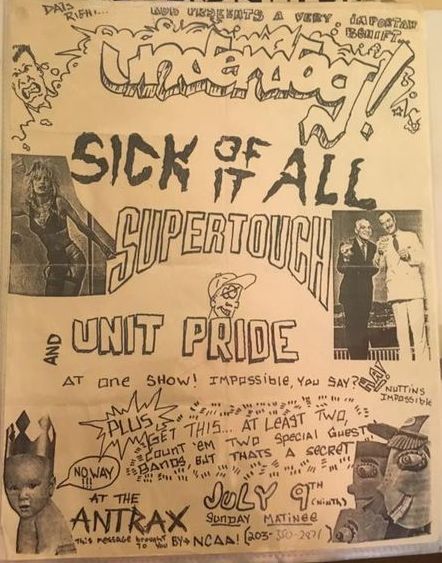 DAIS RICHI...
AUD PRESENTS A VERY IMPORTAN
BENIFIT...
underdog!
SICK OF IT ALL
SUPERTOUCH
AND UNIT PRIDE
AT one SHOW! IMPOSSIBLE, YOU SAY?
HA!
NUTTINS
IMPOSSIBLE
PLUS
GET THIS... AT LEAST TWO,
COUNT 'EM TWO SPECIAL GUEST
BANDS, BUT THATS A SECRET
NO WAY
AT THE
ANTRAX
JULY 9TH (NINTH)
SUNDAY MATINEE
THIS MESSAGE BROUGHT
TO YOU BY→ NCAA! (203-